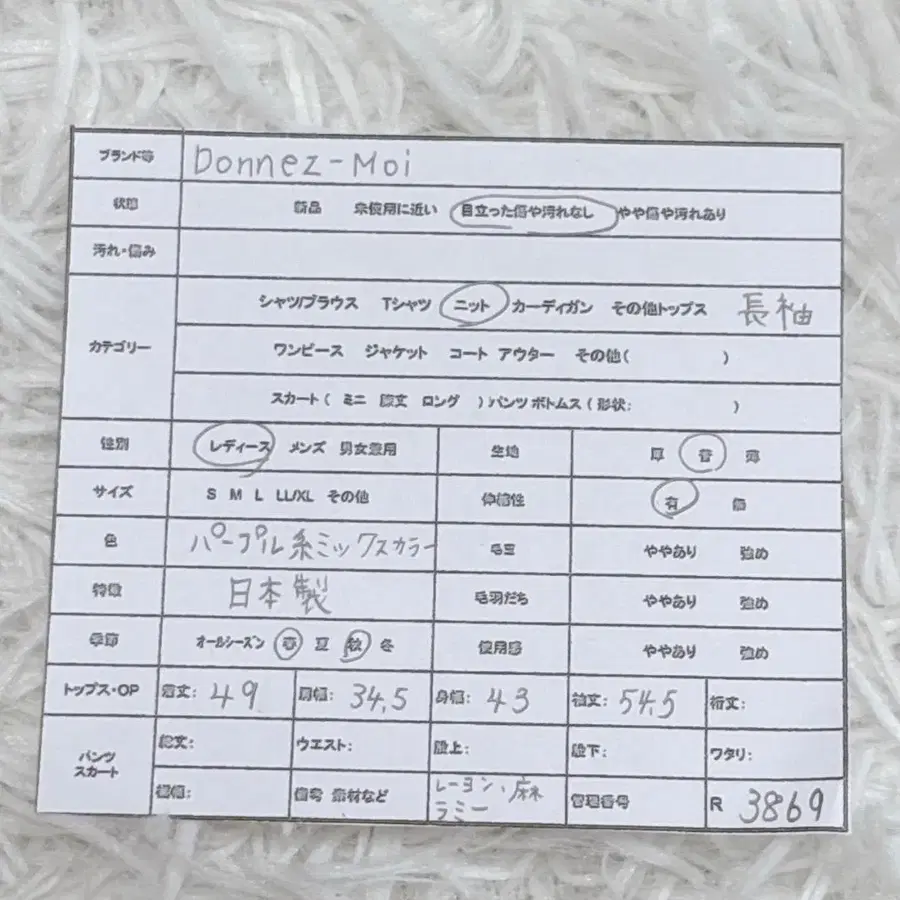 ブランド等 Donnez-Moi
状態 新品 未使用に近い 目立った傷や汚れなし やや傷や汚れあり
汚れ・傷み
カテゴリー
シャツ/ブラウス Tシャツ ニット カーディガン その他トップス 長袖
ワンピース ジャケット コート アウター その他( )
スカート( ミニ 膝丈 ロング )パンツ ボトムス( 形状: )
性別 レディース メンズ 男女兼用 生地 厚 普 薄
サイズ S M L LL/XL その他 伸縮性 有 無
色 パープル系ミックスカラー 毛玉 ややあり 強め
特徴 日本製 毛羽だち ややあり 強め
季節 オールシーズン 春 夏 秋 冬 使用感 ややあり 強め
トップス・OP 着丈: 49 肩幅: 34.5 身幅: 43 袖丈: 54.5 裄丈:
パンツ
スカート
総丈: ウエスト: 股上: 股下: ワタリ:
裾幅: 備考 素材など レーヨン、麻
ラミー
管理番号 R 3869